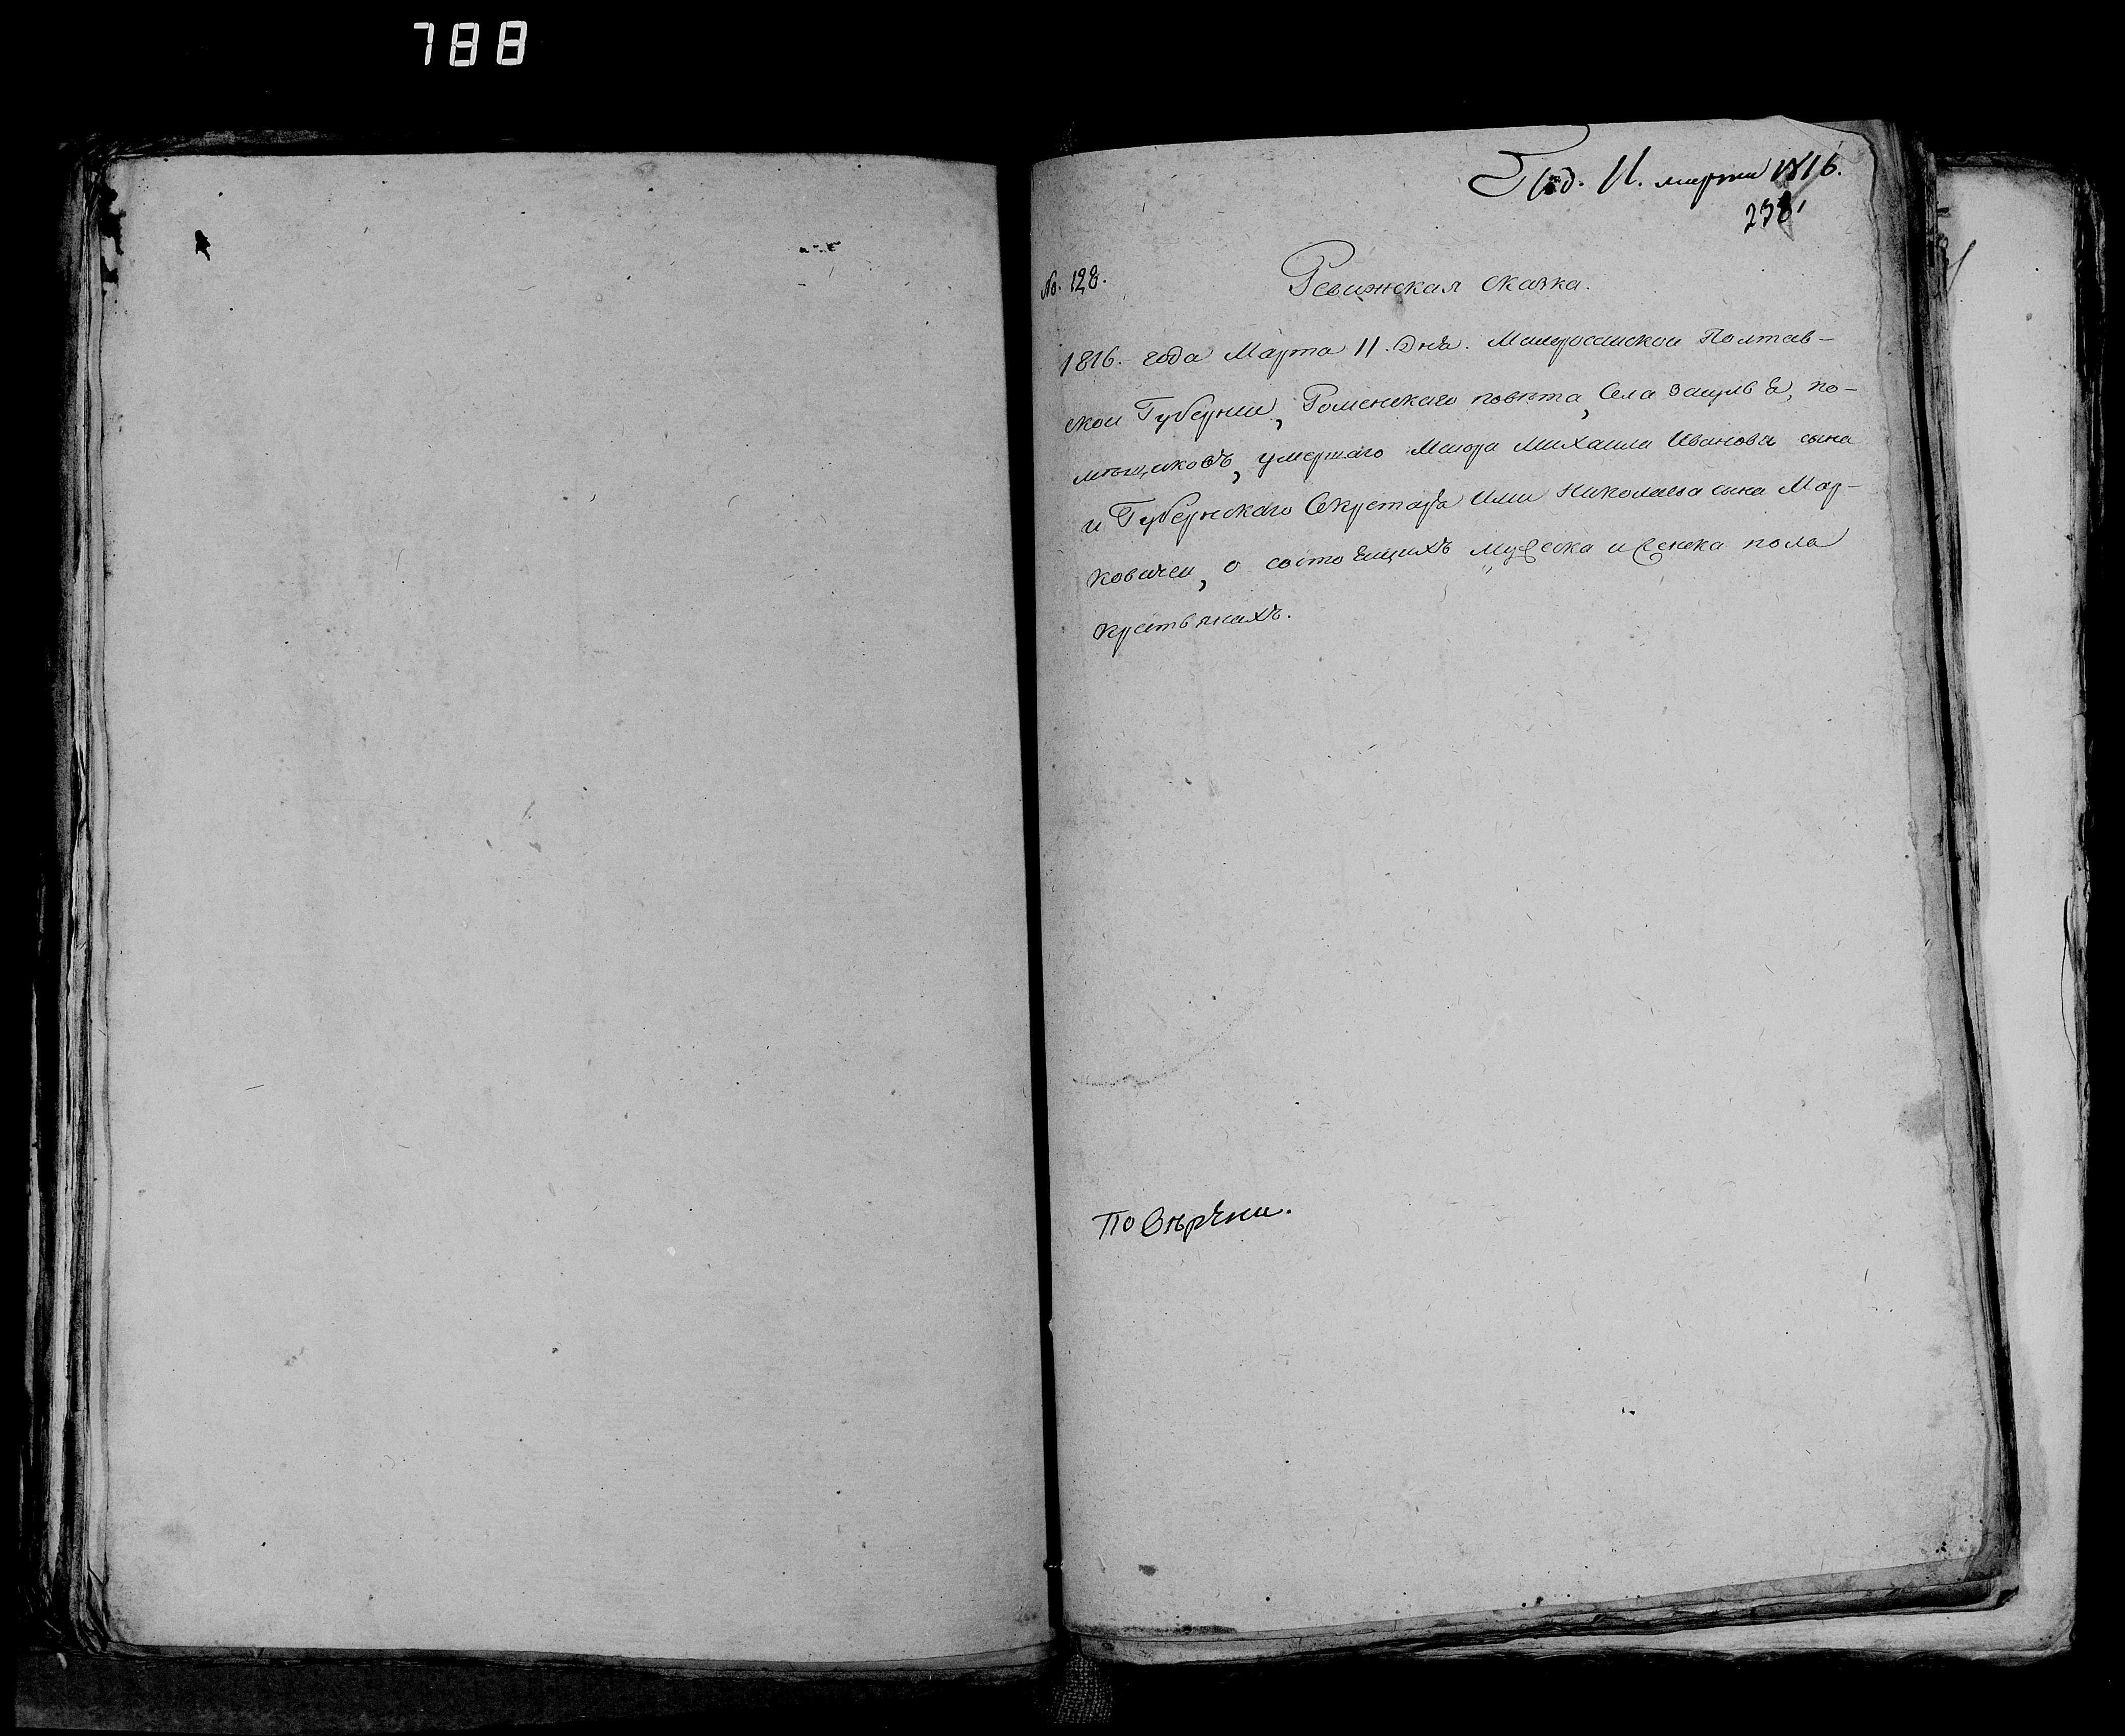 788
Под. 11. марта 1816.
238
No. 128.
Ревижская сказка.
1816. года Марта 11. Дня. Малоросииской Полтав-
ской Губернии, Роменского повѣта, Села Засулья, по-
мѣщиковъ, умершаго Маиора Михаила Иванова сына
и Губернскаго Секретаря Ильи Николаева сына Мар-
ковичей, о состоящихъ мужеска и женска пола
крестьянахъ.
По